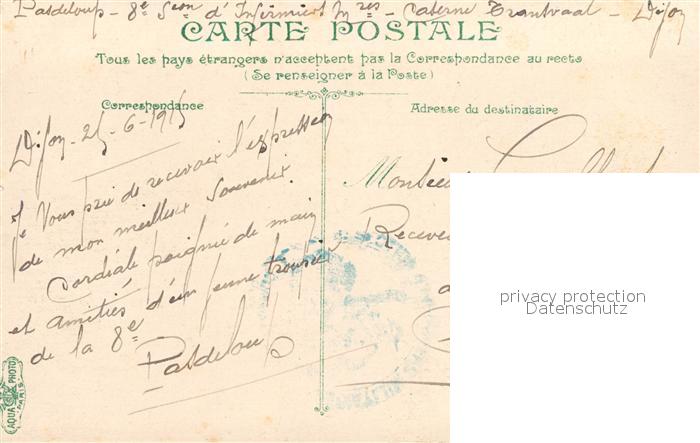 Pasdeloup - 8e Son d'Infirmiers Mres - Caserne Trantvaal - Dijon
CARTE POSTALE
Tous les pays étrangers n'acceptent pas la Correspondance au recto
(Se renseigner à la Poste)
Correspondance
Dijon - 25-6-1915
Je Vous prie de recevoir l'expression
de mon meilleur Souvenir
Cordiale poignée de main
et amitiés d'un jeune troupier
de la 8e
Pasdeloup
AQUA PHOTO
PARIS
Adresse du destinataire
Monsieur
Receve
privacy protection
Datenschutz